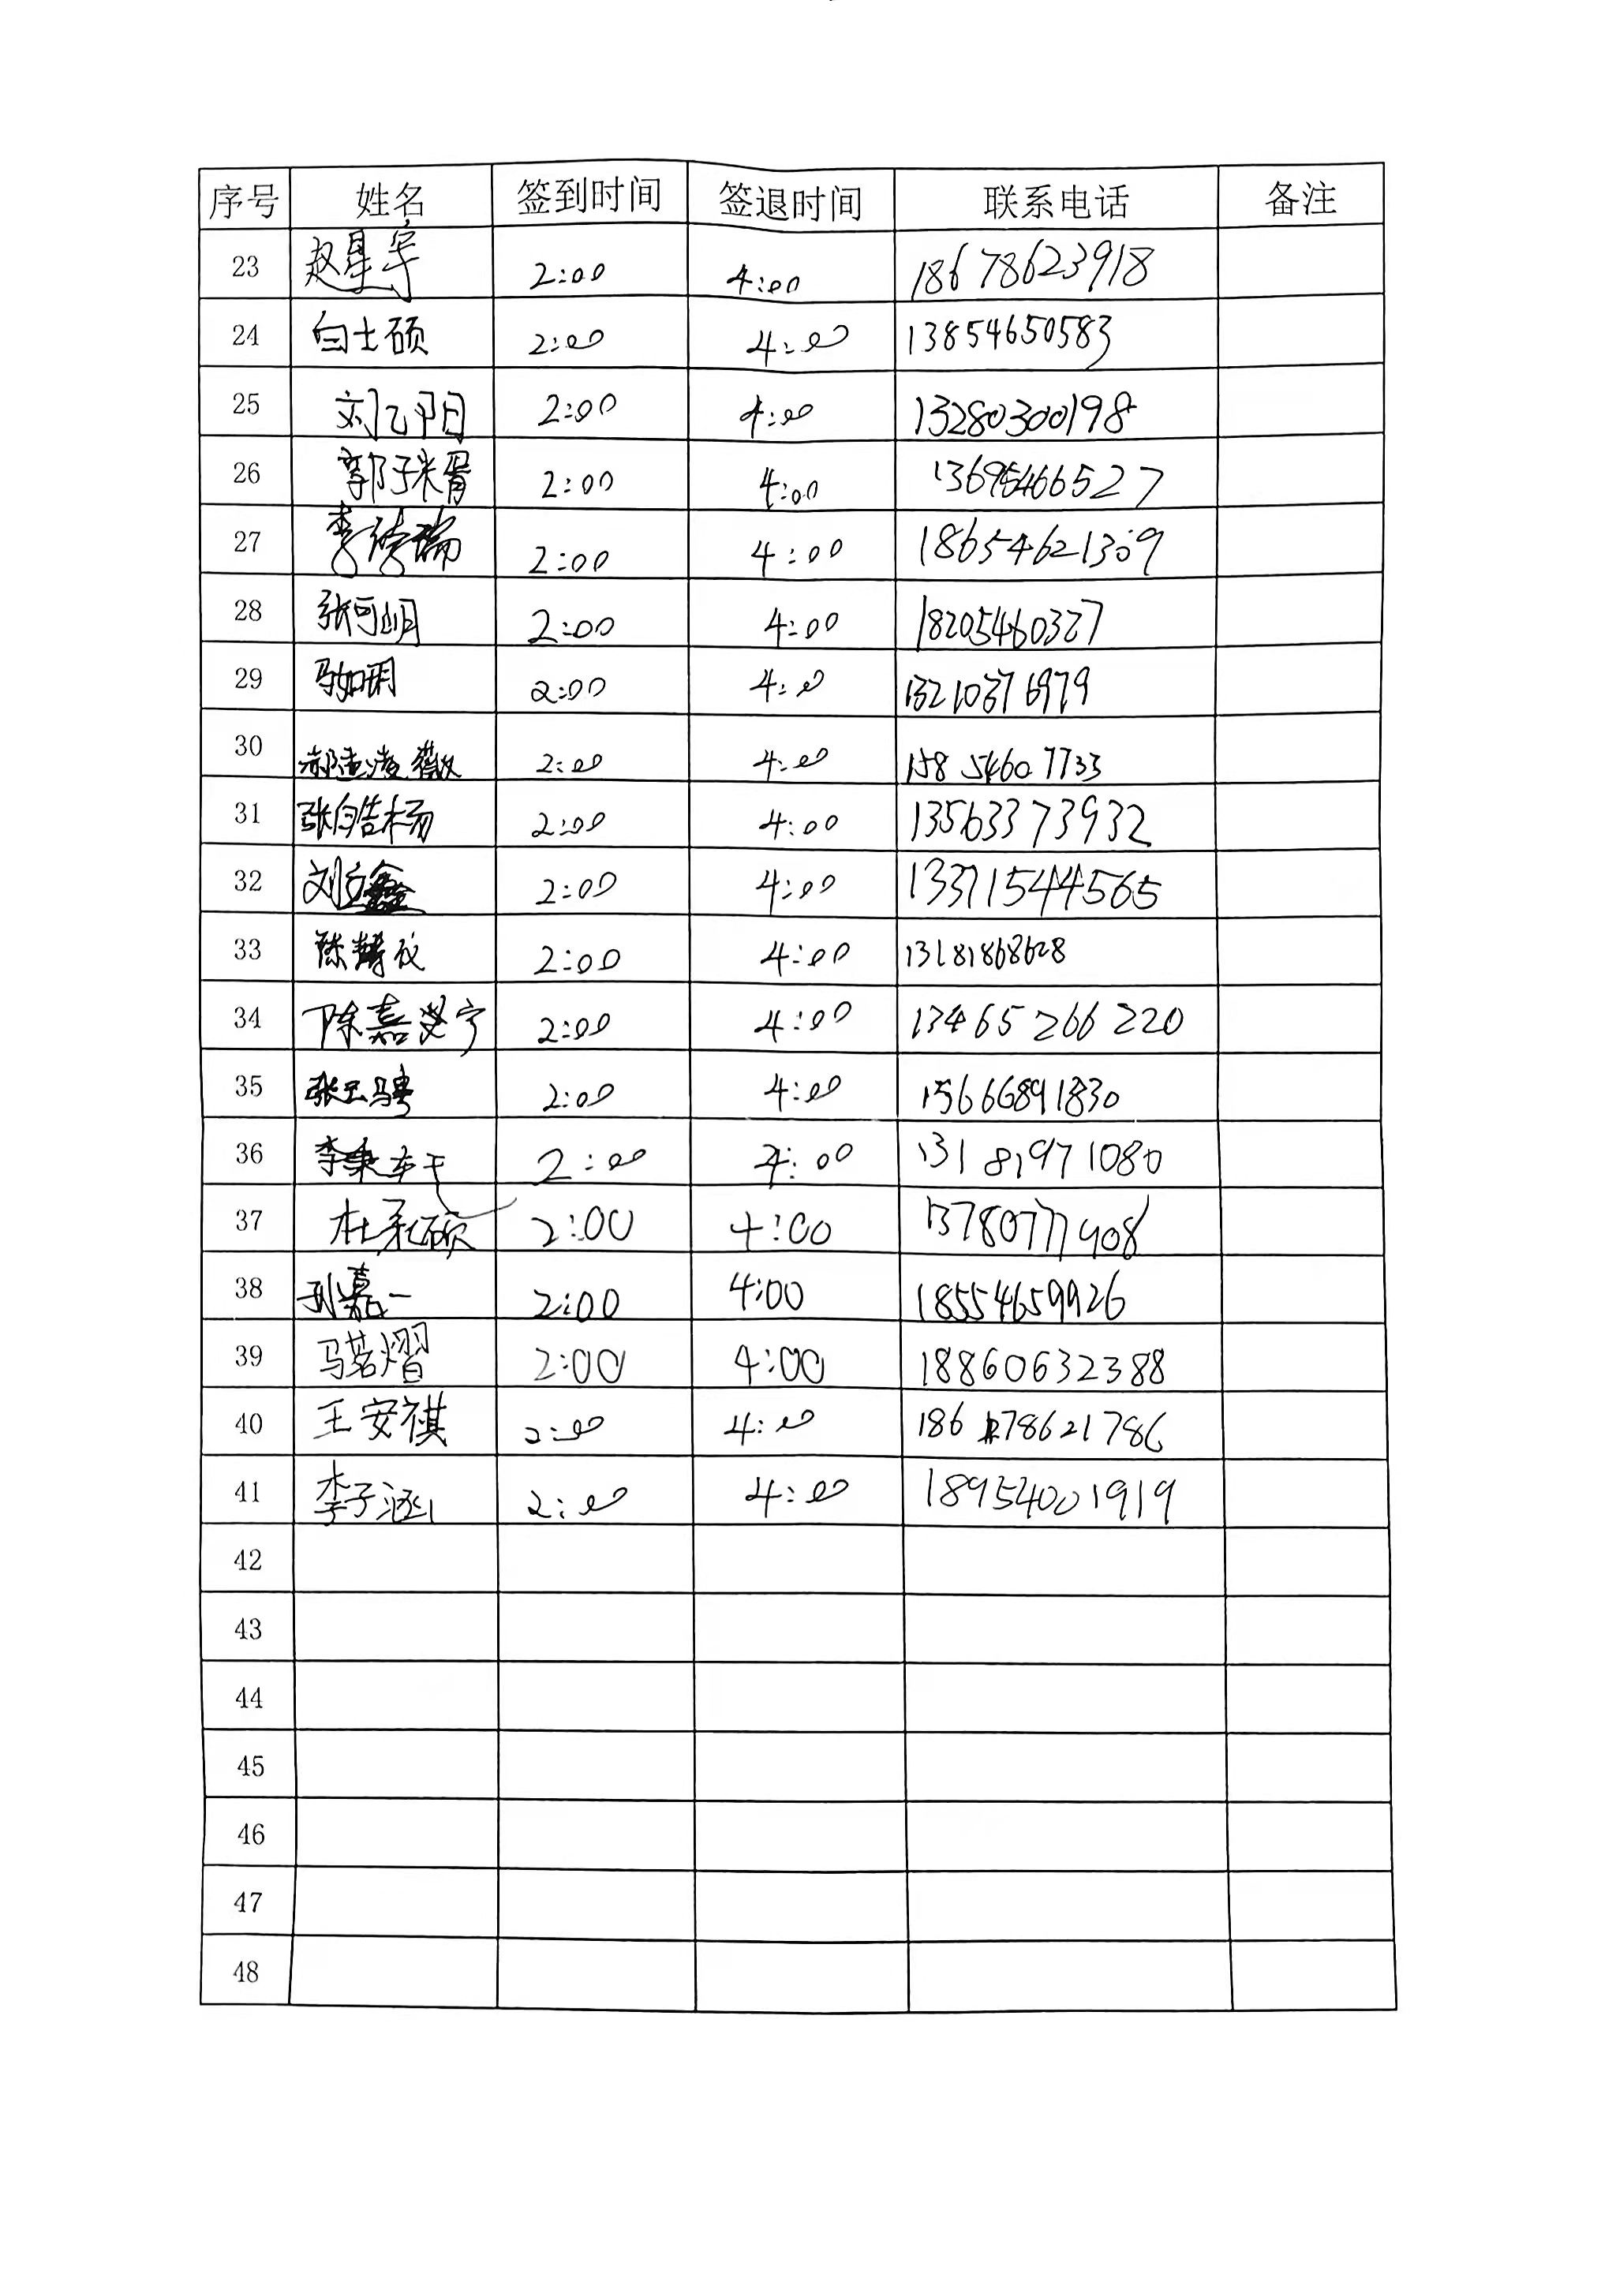 序号 姓名 签到时间 签退时间 联系电话 备注
23 赵星宇 2:00 4:00 18678623918
24 白士硕 2:00 4:00 13854650583
25 刘乙阳 2:00 4:00 13280300198
26 郭子米胥 2:00 4:00 13695466527
27 李绮瑞 2:00 4:00 18654621309
28 张可明 2:00 4:00 18205460327
29 马如玥 2:00 4:00 13210376979
30 2:00 4:00 15854607733
31 张皓杨 2:00 4:00 13563373932
32 刘立鑫 2:00 4:00 13371544565
33 2:00 4:00 13181868628
34 陈嘉 宁 2:00 4:00 13465266220
35 张云骋 2:00 4:00 15666891830
36 李秉轩 2:00 4:00 13181971080
37 杜承硕 2:00 4:00 13780777908
38 孙嘉一 2:00 4:00 18554659926
39 马茗熠 2:00 4:00 18860632388
40 王安祺 2:00 4:00 18678621786
41 李子涵 2:00 4:00 18954001919
42
43
44
45
46
47
48